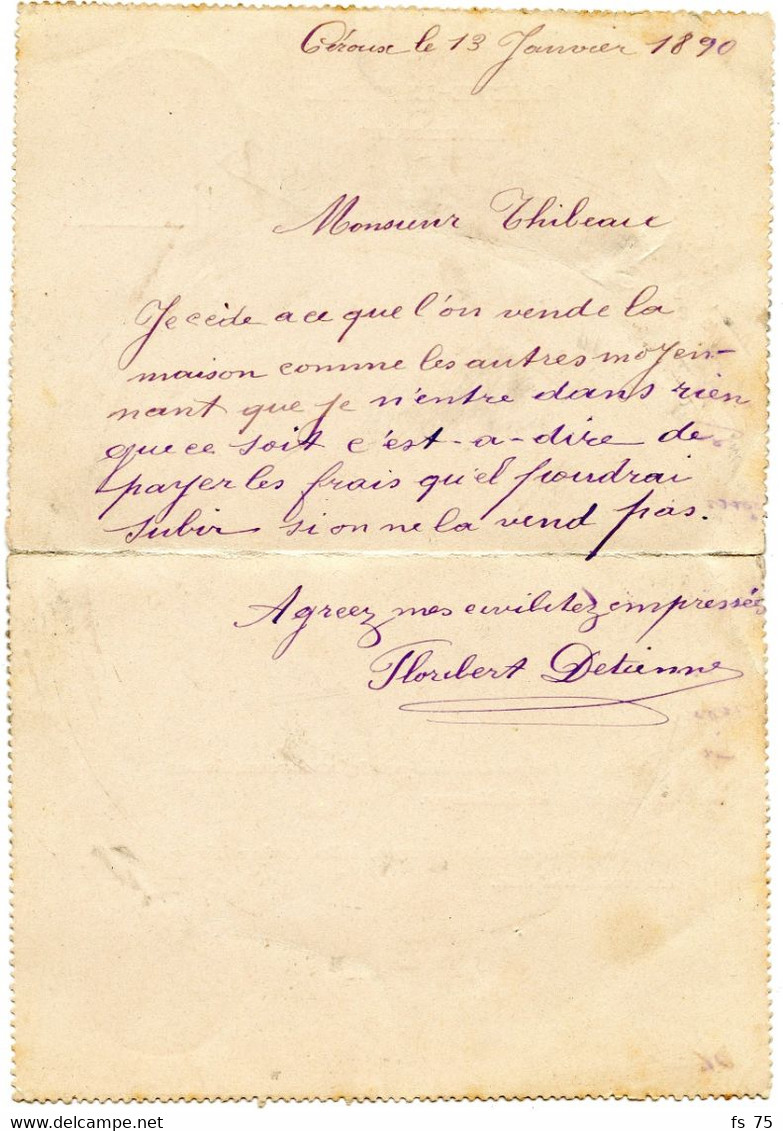 Céroux le 13 Janvier 1890
Monsieur Thibeau
Je cède a ce que l'on vende la
maison comme les autres moyen-
nant que je n'entre dans rien
que ce soit c'est-a-dire de
payer les frais qu'el foudrai
subir si on ne la vend pas.
Agreez mes civilitez empressées
Floribert Detienne
fs 75